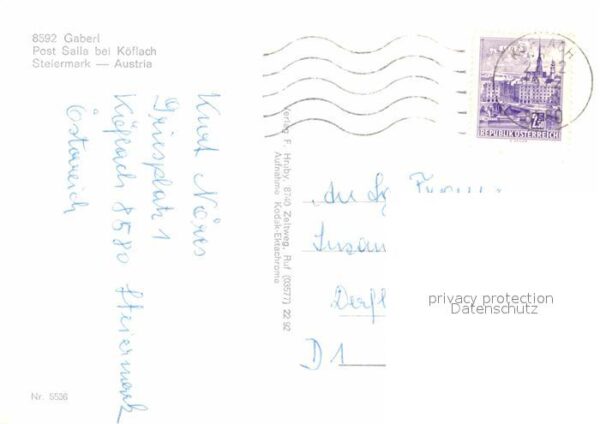 8592 Gaberl
Post Salla bei Köflach
Steiermark — Austria
Kurt Nöres
Griesplatz 1
Köflach 8580 Steiermark
Österreich
Verlag F. Hruby, 8740 Zeltweg, Ruf (03577) 22 92
Aufnahme Kodak-Ektachrome
REPUBLIK ÖSTERREICH
An
Susan
Dorf
D1
privacy protection
Datenschutz
Nr. 5536